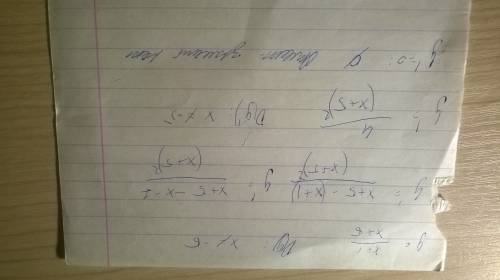 y = x+1 / x+5   D(y): x ≠ -5
y' = x+5 - (x+1) / (x+5)²   y' = x+5 - x - 1 / (x+5)²
y' = 4 / (x+5)²   D(y'): x ≠ -5
y' = 0: